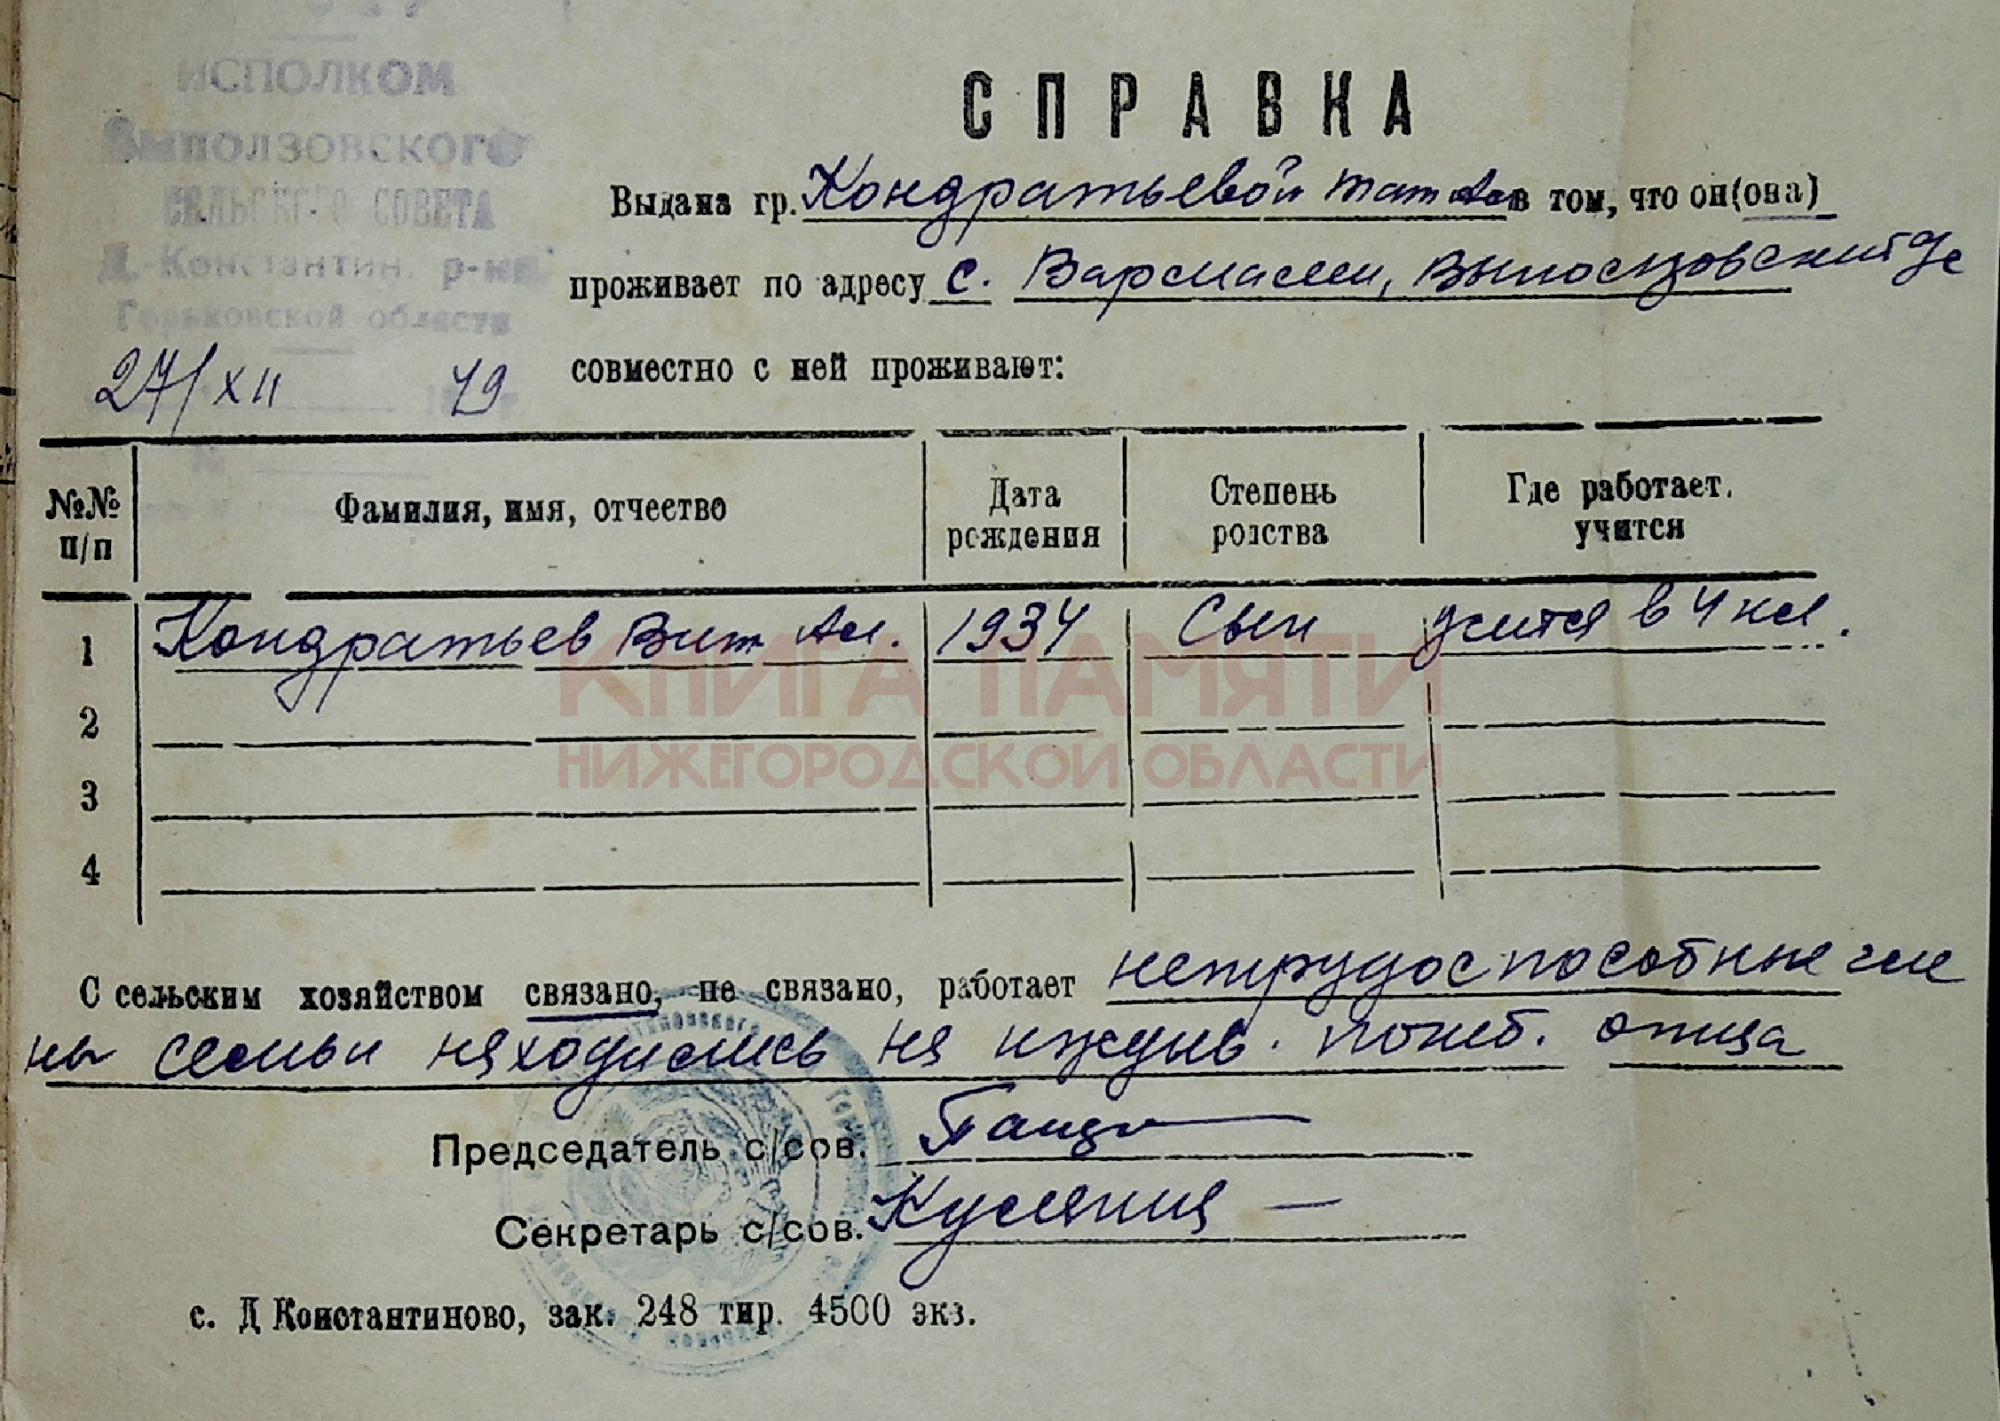 ИСПОЛКОМ
Выползовского
СЕЛЬСКОГО СОВЕТА
Д.-Константин. р-на
Горьковской области
27/XII 49
СПРАВКА
Выдана гр. Кондратьевой Тат в том, что он(она)
проживает по адресу с. Вармалеи,
совместно с ней проживают:
№№ п/п Фамилия, имя, отчество Дата рождения Степень родства Где работает, учится
1 Кондратьев Вит Ал. 1934 Сын учится в 4 кл.
2
3
4
КНИГА ПАМЯТИ
НИЖЕГОРОДСКОЙ ОБЛАСТИ
С сельским хозяйством связано, не связано, работает нетрудоспособные чле
ны семьи находились на иждив. погиб. отца
Председатель с/сов.
Секретарь с/сов.
с. Д Константиново, зак. 248 тир. 4500 экз.